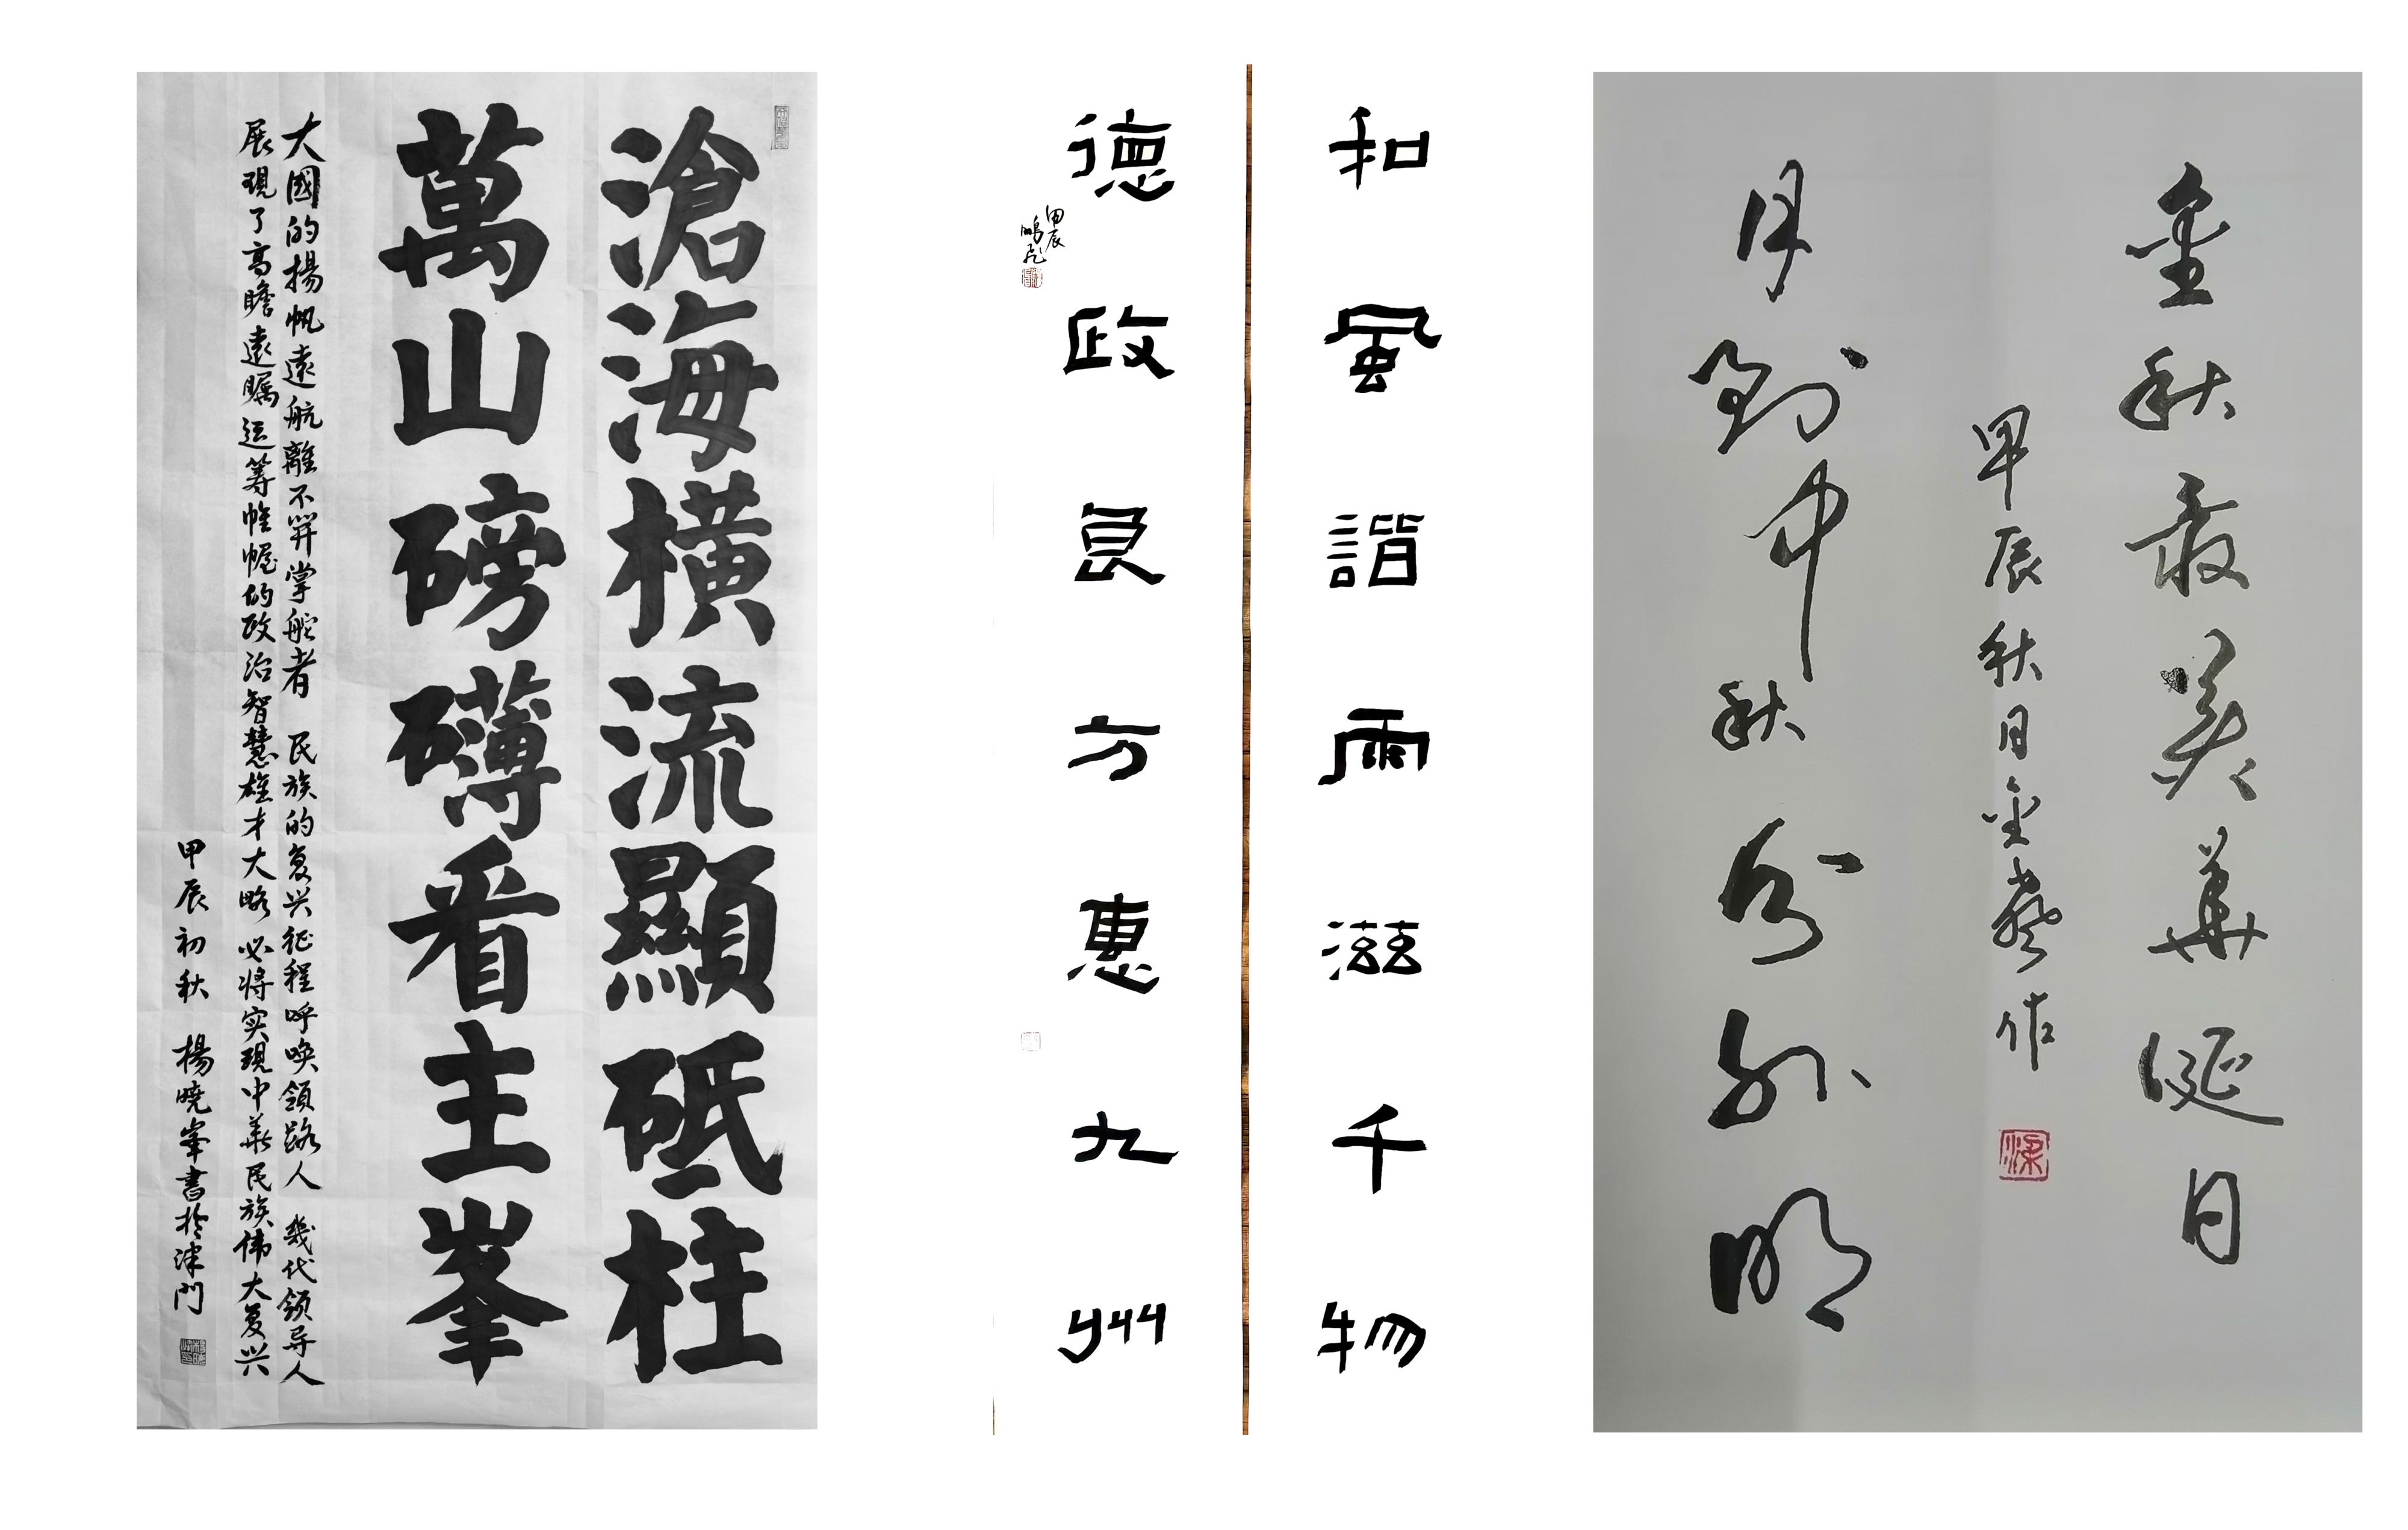 滄海橫流顯砥柱
萬山磅礴看主峯
大國的揚帆遠航離不開掌舵者 民族的复兴征程呼唤領路人 幾代領导人
展現了高瞻遠瞩运筹帷幄的政治智慧雄才大略 必将实現中華民族偉大复兴
甲辰初秋 楊曉峯書於津門
和風諧雨滋千物
德政良方惠九州
甲辰
鵬飛
金秋最美華诞日
月到中秋分外明
甲辰秋日金聲作
梁